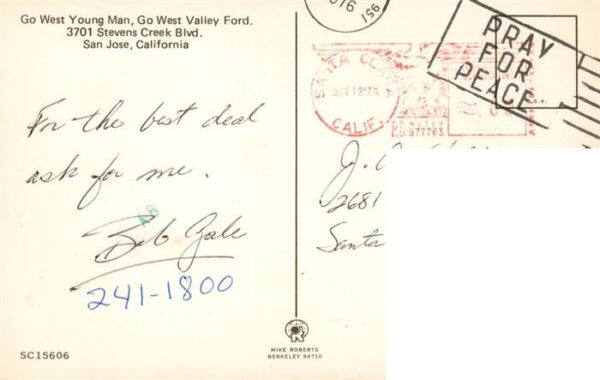 Go West Young Man, Go West Valley Ford.
3701 Stevens Creek Blvd.
San Jose, California
For the best deal
ask for me.
Bob Gale
241-1800
SC15606
MIKE ROBERTS
BERKELEY 94710
951
976
PRAY
FOR
PEACE
SANTA CLARA
OCT 12'76
CALIF.
P.B. METER
977763
U.S.A.
J.
2681
Santa